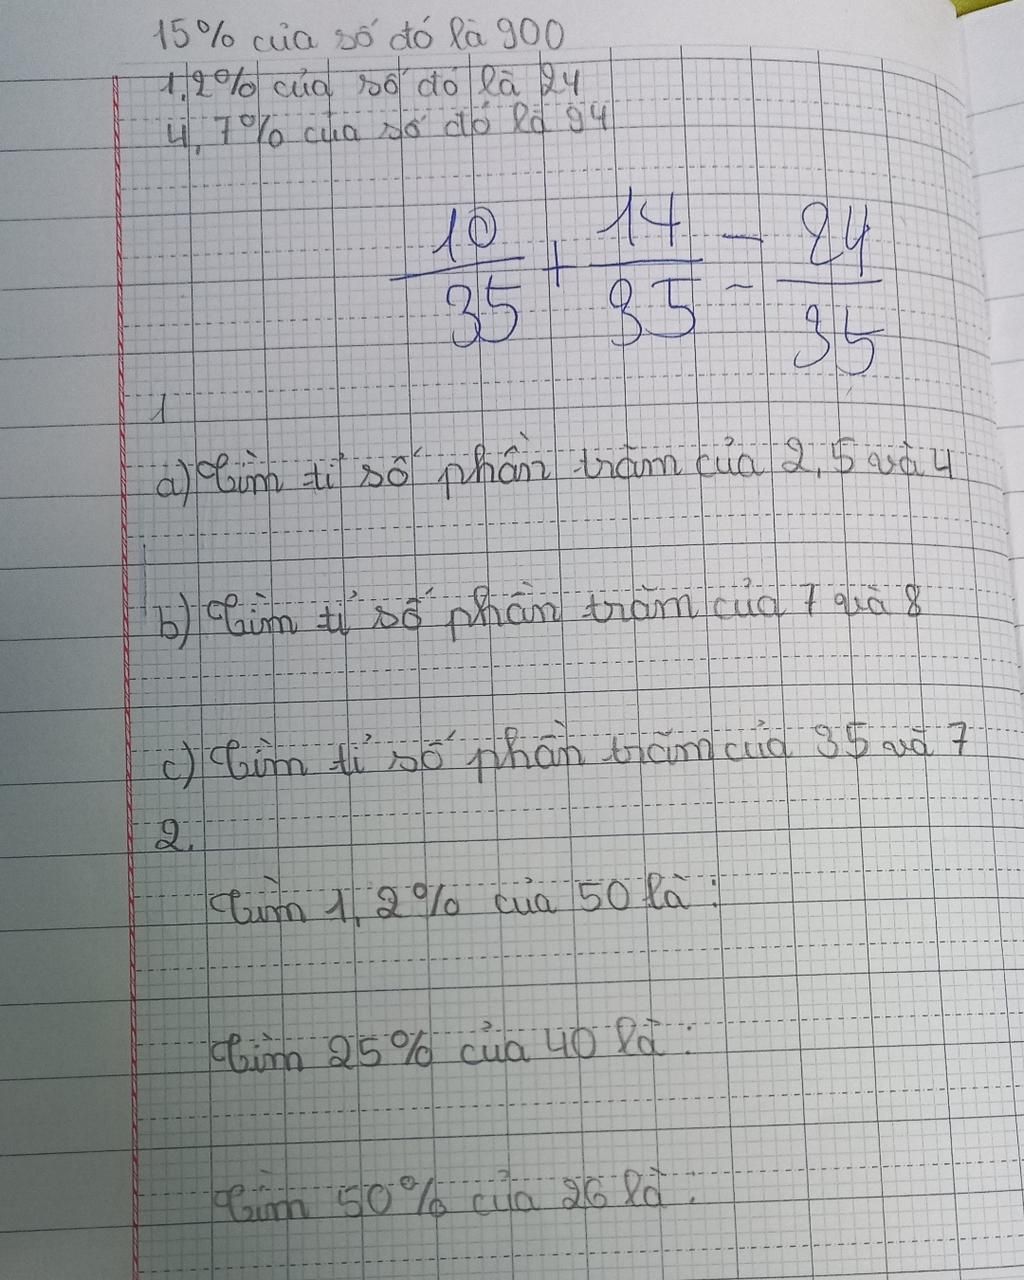 15% của số đó là 900
1,2% của số đó là 24
4,7% của số đó là 94
10/35 + 14/35 = 24/35
1
a) Tìm tỉ số phần trăm của 2,5 và 4
b) Tìm tỉ số phần trăm của 7 và 8
c) Tìm tỉ số phần trăm của 35 và 7
2.
Tìm 1,2% của 50 là :
Tìm 25% của 40 là :
Tìm 50% của 26 là :